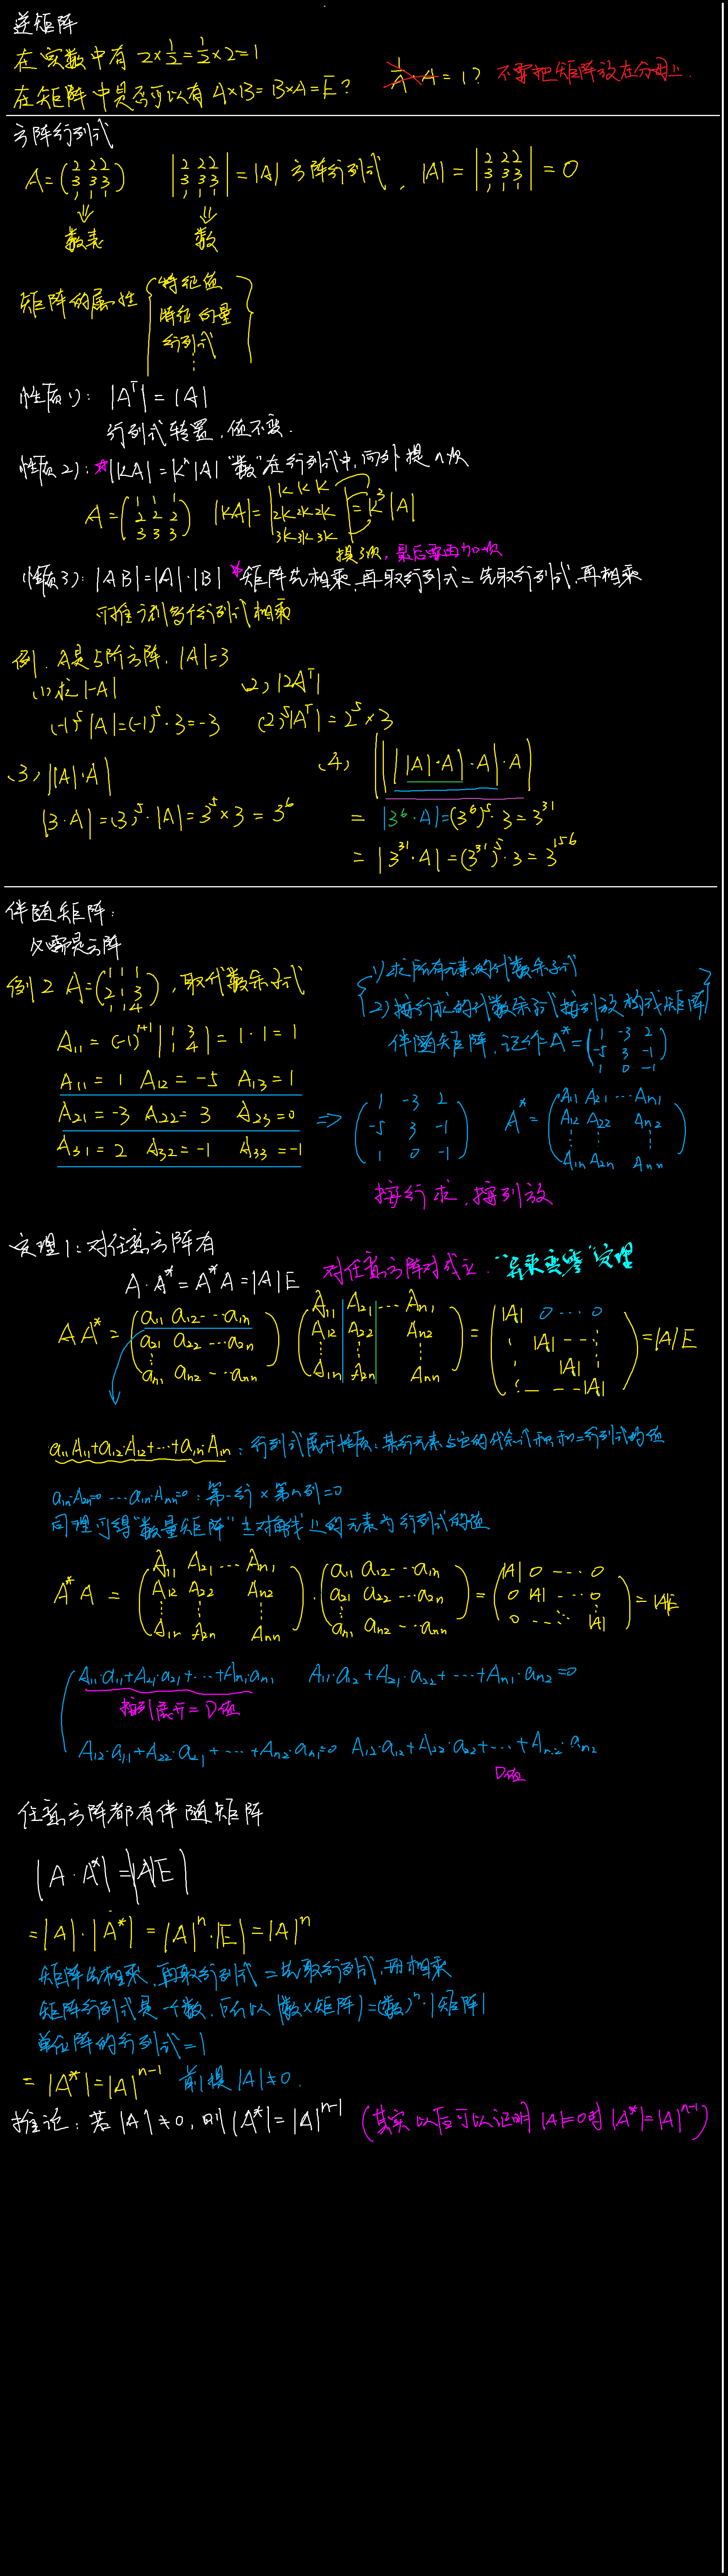 逆矩阵
在实数中有 2×1/2=1/2×2=1
在矩阵中是否可以有 A×B=B×A=E? 1/A·A=1? 不要把矩阵放在分母上.
方阵行列式
A=(2 2 2; 3 3 3; 1 1 1) |2 2 2; 3 3 3; 1 1 1|=|A| 方阵行列式, |A|=|2 2 2; 3 3 3; 1 1 1|=0
⇓ ⇓
数表 数
矩阵的属性 { 特征值
特征向量
行列式
⋮ }
性质1): |A^T|=|A|
行列式转置,值不变.
性质2): *|KA|=K^n|A| "数"在行列式中,向外提n次
A=(1 1 1; 2 2 2; 3 3 3) |KA|=|K K K; 2K 2K 2K; 3K 3K 3K|=K^3|A|
提3次,
性质3): |AB|=|A|·|B| *矩阵先相乘,再取行列式=先取行列式,再相乘
可推广到多个行列式相乘
例1. A是5阶方阵, |A|=3
(1)求|-A| (2) |2A^T|
(-1)^5|A|=(-1)^5·3=-3 (2)^5|A^T|=2^5×3
(3) ||A|·A| (4) ||||A|·A|·A|·A|
|3·A|=(3)^5·|A|=3^5×3=3^6 = |3^6·A|=(3^6)^5·3=3^31
= |3^31·A|=(3^31)^5·3=3^156
伴随矩阵:
必需是方阵
例2 A=(1 1 1; 2 1 3; 1 1 4), 取代数余子式
A11=(-1)^(1+1)|1 3; 1 4|=1·1=1
A11=1 A12=-5 A13=1
A21=-3 A22=3 A23=0
A31=2 A32=-1 A33=-1
1)求所有元素的代数余子式
2)按行求的代数余子式按列放构成矩阵
伴随矩阵,记作A*=(1 -3 2; -5 3 -1; 1 0 -1)
⇒ (1 -3 2; -5 3 -1; 1 0 -1) A*=(A11 A21 ⋯ An1; A12 A22 An2; ⋮ ⋮ ⋮; A1n A2n Ann)
按行求,按列放
定理1:对任意方阵有
A·A*=A*A=|A|E 对任意方阵对成立. "异乘变零"定理
AA*=(a11 a12 ⋯ a1n; a21 a22 ⋯ a2n; ⋮; an1 an2 ⋯ ann) (A11 A21 ⋯ An1; A12 A22 An2; ⋮ ⋮ ⋮; A1n A2n Ann)=(|A| 0 ⋯ 0; ⋮ |A| - - ⋮; |A| ⋮; ⋮ - - |A|)=|A|E
a11A11+a12·A12+⋯+a1n·A1n: 行列式展开性质:某行元素与它的代余式积和=行列式的值
a1n·A2n=0 ⋯ a1n·Ann=0: 第一行×第n列=0
同理可得"数量矩阵"主对角线上的元素为行列式的值
A*A=(A11 A21 ⋯ An1; A12 A22 An2; ⋮ ⋮ ⋮; A1n A2n Ann)·(a11 a12 ⋯ a1n; a21 a22 ⋯ a2n; ⋮; an1 an2 ⋯ ann)=(|A| 0 ⋯ 0; 0 |A| ⋯ 0; 0 ⋯ |A|)=|A|E
A11·a11+A21·a21+⋯+An1·an1 A11·a12+A21·a22+⋯+An1·an2=0
按列展开=D值
A12·a11+A22·a21+⋯+An2·an1=0 A12·a12+A22·a22+⋯+An2·an2
D值
任意方阵都有伴随矩阵
|A·A*|=||A|E|
=|A|·|A*|=|A|^n·|E|=|A|^n
矩阵先相乘,再取行列式=先取行列式,再相乘
矩阵行列式是一个数,所以|数×矩阵|=(数)^n·|矩阵|
单位阵的行列式=1
=|A*|=|A|^(n-1) 前提|A|≠0.
推论:若|A|≠0,则|A*|=|A|^(n-1) (其实以后可以证明|A|=0时|A*|=|A|^(n-1))